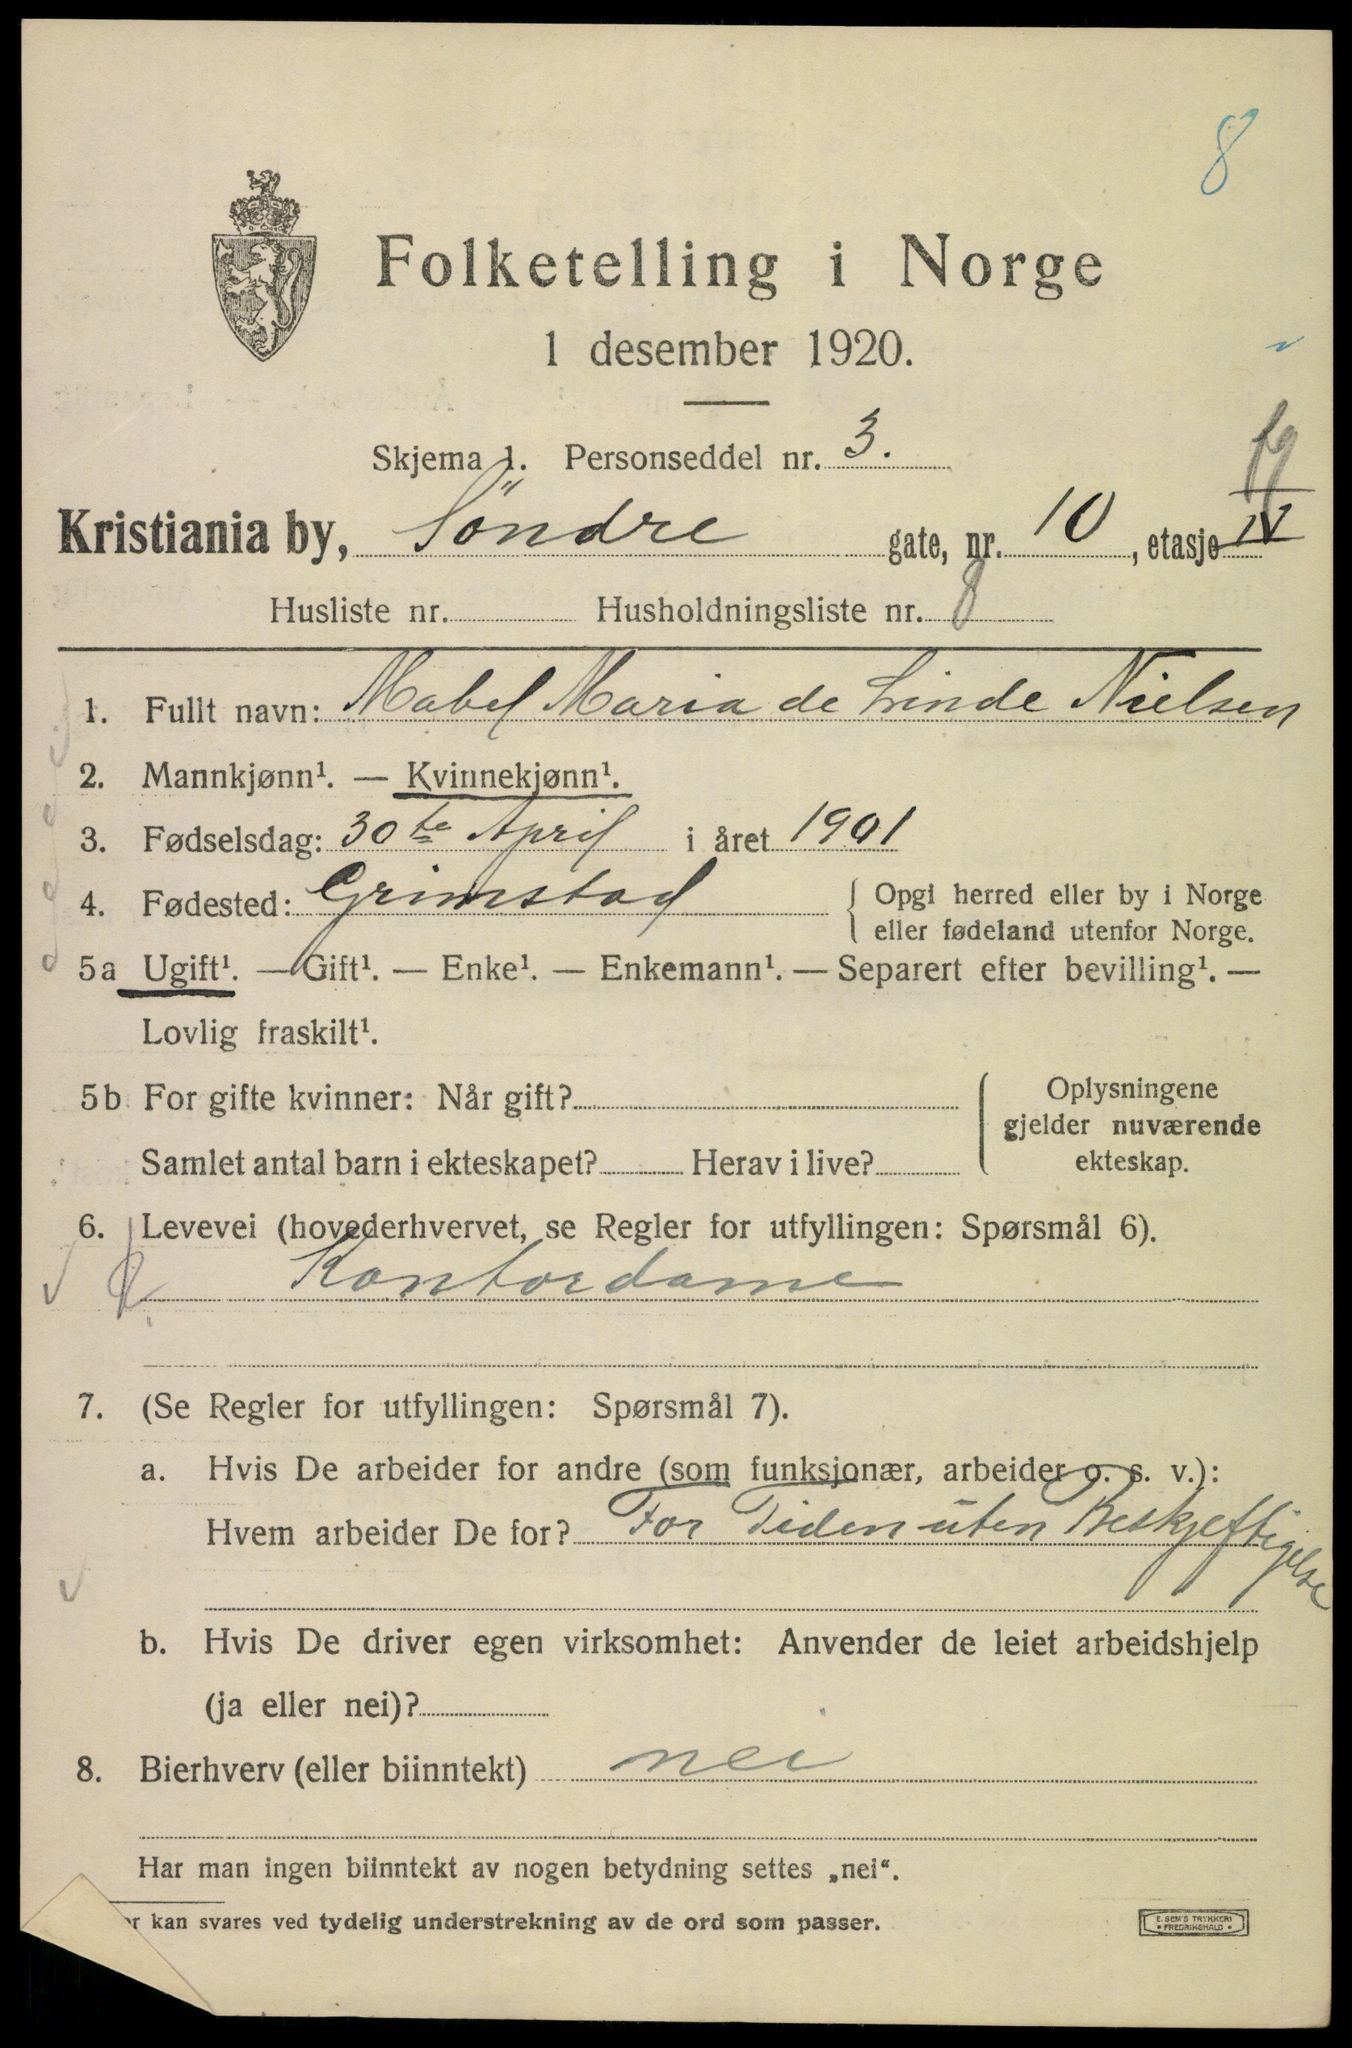 8
Folketelling i Norge
1 desember 1920.
Skjema 1. Personseddel nr. 3.
Kristiania by, Söndre gate, nr. 10, etasje IV
Husliste nr. Husholdningsliste nr. 8
1. Fullt navn: Mabel Maria de Linde Nielsen
2. Mannkjønn¹. — Kvinnekjønn¹.
3. Fødselsdag: 30te April i året 1901
4. Fødested: Grimstad { Opgi herred eller by i Norge
eller fødeland utenfor Norge.
5a Ugift¹. — Gift¹. — Enke¹. — Enkemann¹. — Separert efter bevilling¹. —
Lovlig fraskilt¹.
5b For gifte kvinner: Når gift? { Oplysningene
gjelder nuværende
Samlet antal barn i ekteskapet? Herav i live? ekteskap.
6. Levevei (hovederhvervet, se Regler for utfyllingen: Spørsmål 6).
Kontordame
7. (Se Regler for utfyllingen: Spørsmål 7).
a. Hvis De arbeider for andre (som funksjonær, arbeider o. s. v.):
Hvem arbeider De for? For Tiden uten Beskjeftigelse
b. Hvis De driver egen virksomhet: Anvender de leiet arbeidshjelp
(ja eller nei)?
8. Bierhverv (eller biinntekt) nei
Har man ingen biinntekt av nogen betydning settes „nei“.
kan svares ved tydelig understrekning av de ord som passer.
E. SEM'S TRYKKERI
* FREDRIKSHALD *